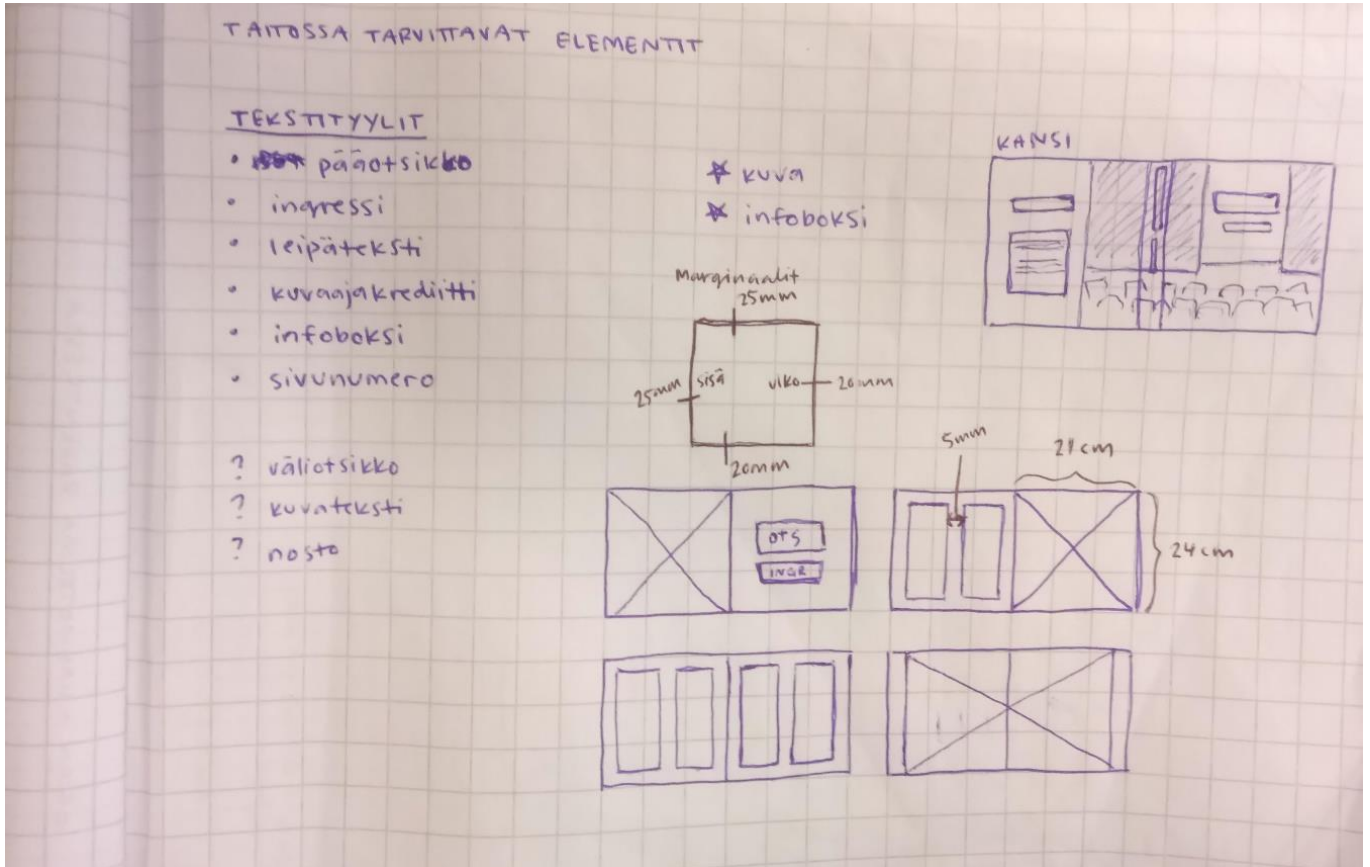 TAITOSSA TARVITTAVAT ELEMENTIT
TEKSTITYYLIT
• pääotsikko
• ingressi
• leipäteksti
• kuvaajakrediitti
• infoboksi
• sivunumero
? väliotsikko
? kuvateksti
? nosto
kuva
infoboksi
KANSI
Marginaalit
25mm
25mm
sisä
ulko
20mm
20mm
OTS
INGR.
5mm
21cm
24cm